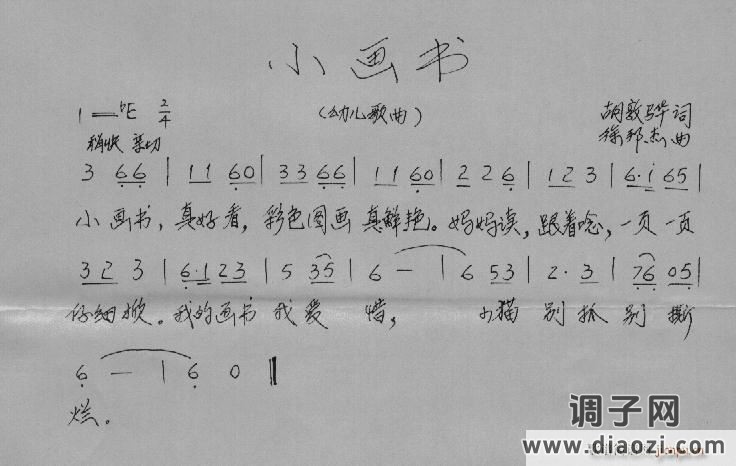 小画书
1=♭E 2/4
(幼儿歌曲)
胡敦骅 词
稍快 亲切
徐邦杰 曲
3 66 | 11 60 | 33 66 | 11 60 | 2 2 6 | 1 2 3 | 6·i 65 |
小画书，真好看，彩色图画真鲜艳。妈妈读，跟着念，一页一页
32 3 | 6·1 23 | 5 35 | 6 — | 6 53 | 2·3 | 76 05 |
仔细掀。我的画书我爱惜，小猫别抓别撕
6 — | 6 0 ‖
烂。
调子网
www.diaozi.com